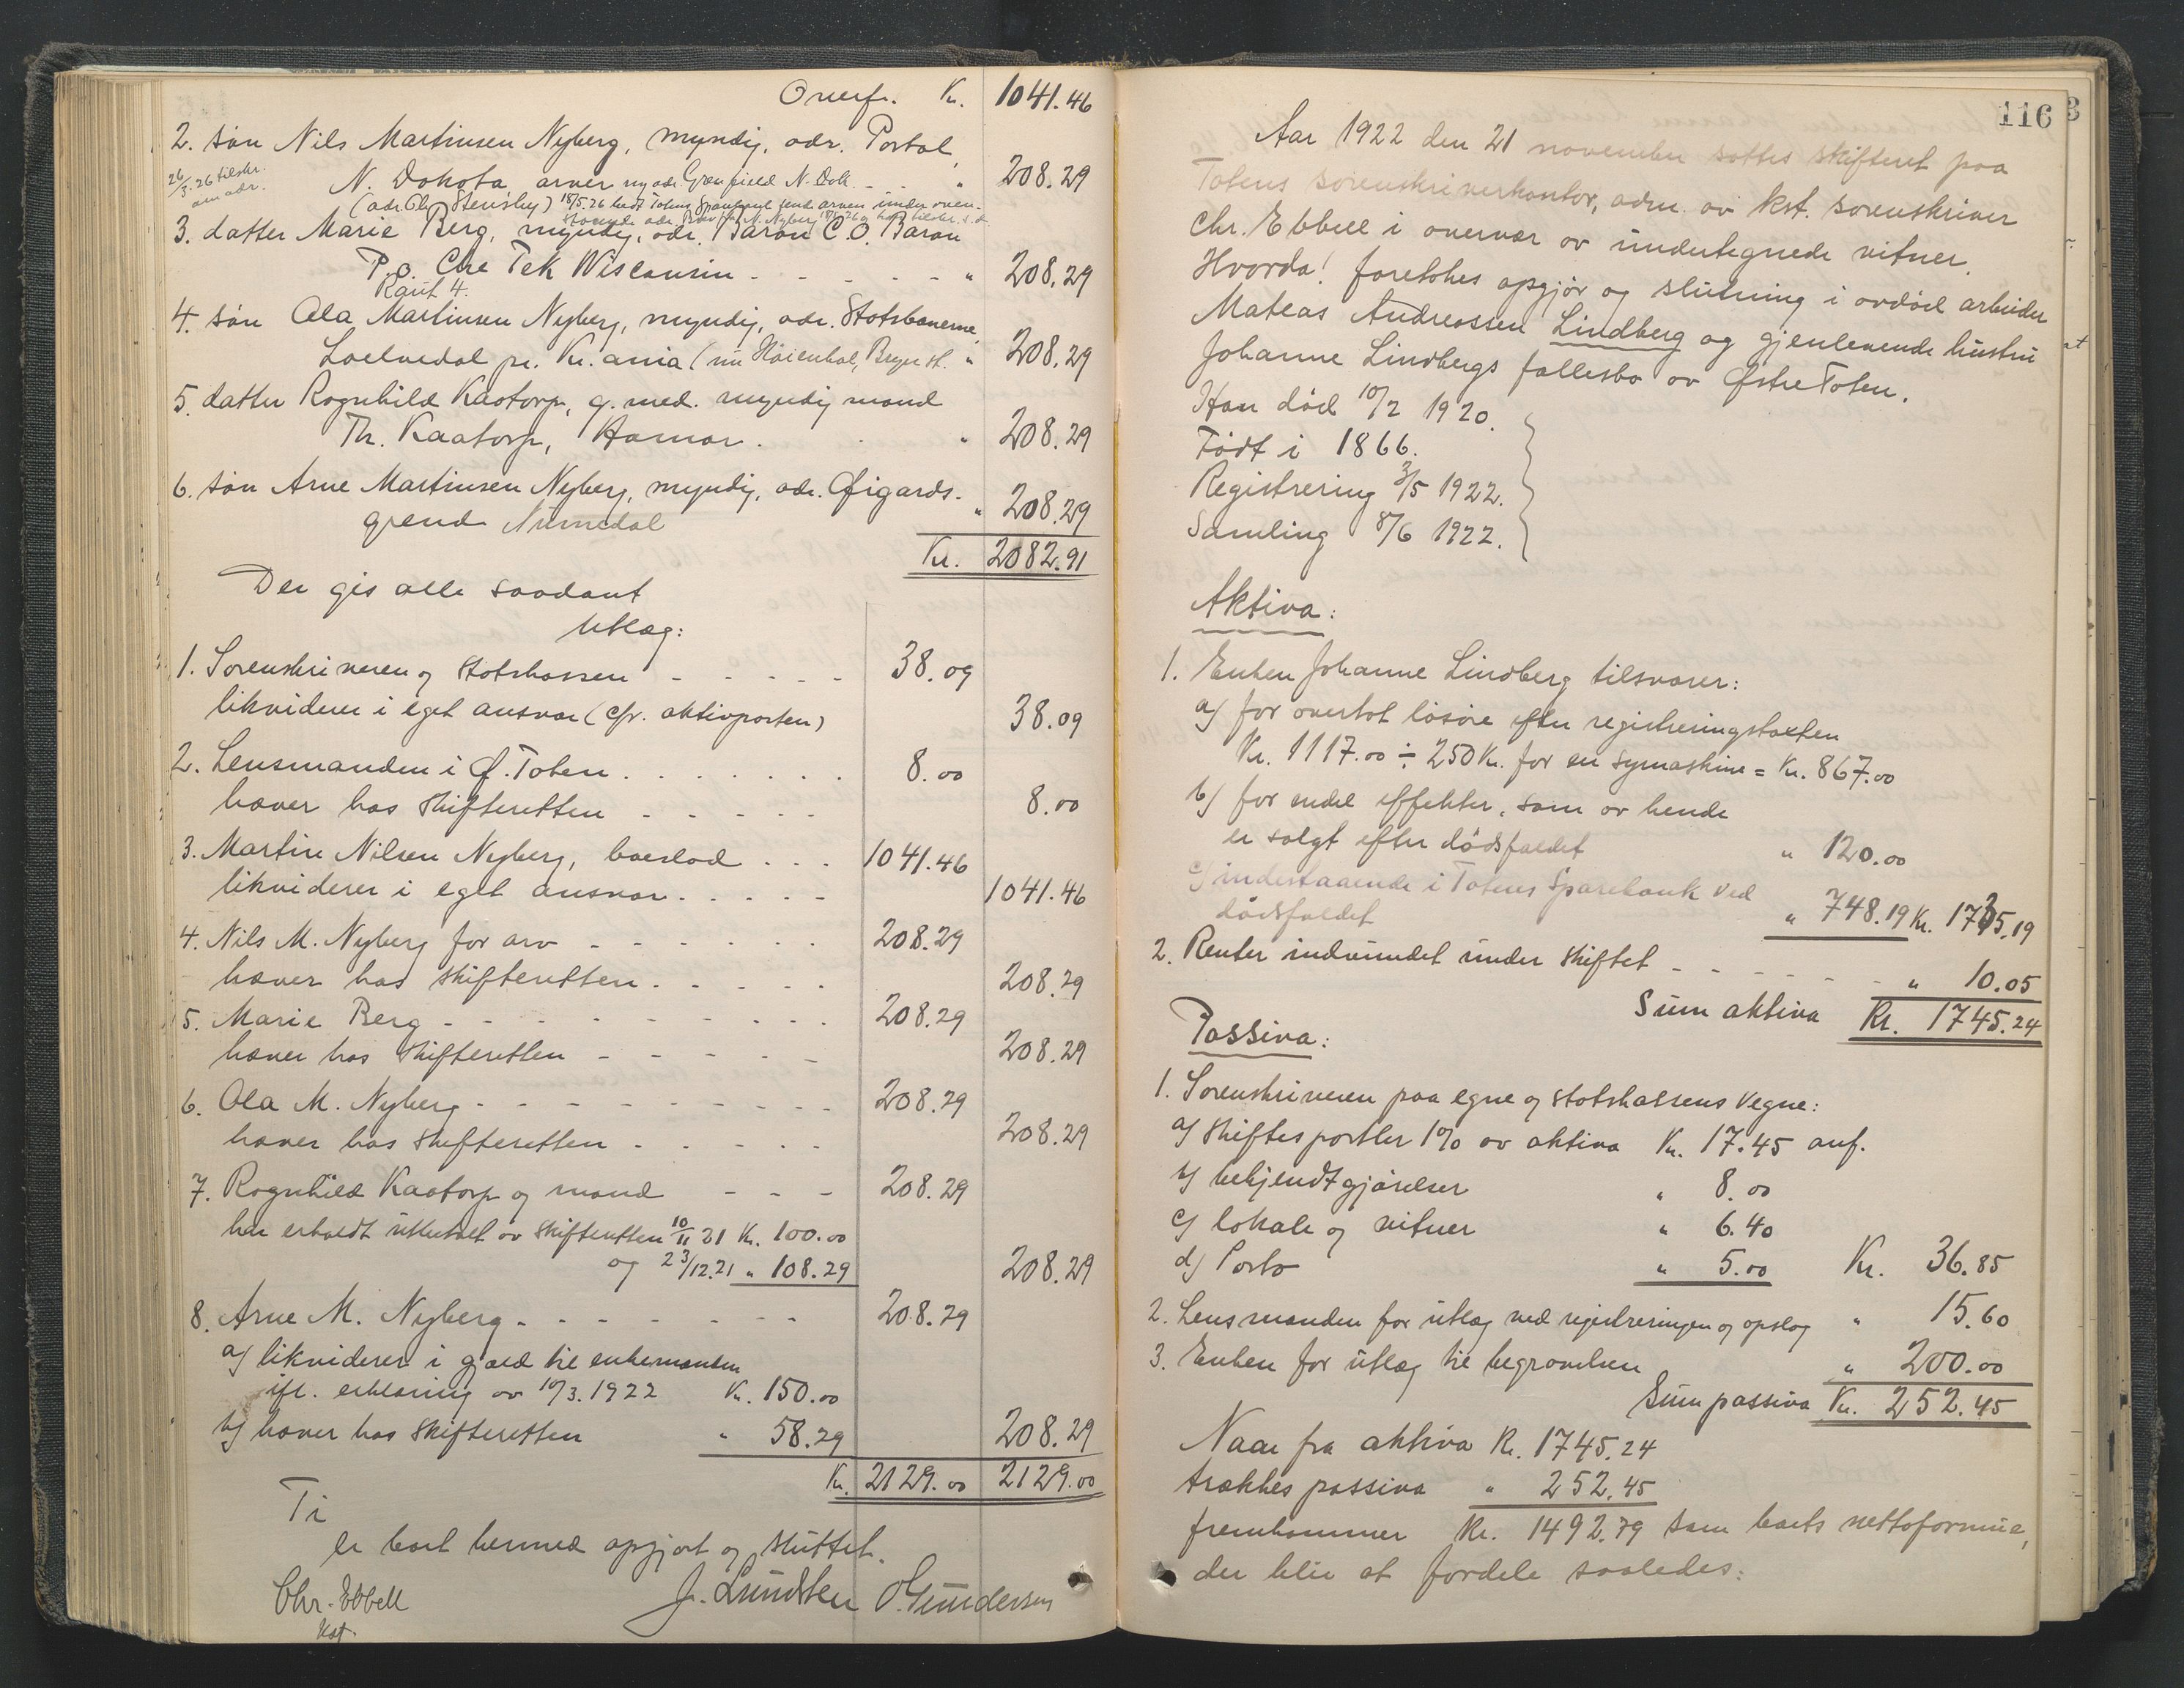 Overf. Kr. 1041.46
2. søn Nils Martinsen Nyberg, myndig, adr. Portal,
26/3.26 tilskr. om adr.
N. Dakota, arver ny adr. Grenfield N. Dak. - - " 208.29
(adr. Ole Stensby) 18/5.26 bedt Totens Sparebank sende arven under oven-
staaende adr. Brev fra N. Nyberg
3. datter Marie Berg, myndig, adr. Baron C.O. Baron
P.o. Che Tek Wisconsin - - - - - " 208.29
Raut 4.
4. søn Ola Martinsen Nyberg, myndig, adr. Statsbanerne,
Loelvedal pr. Kr.ania (nu Høienhal, Bryn st. " 208.29
5. datter Ragnhild Kaatorp, g. med. myndig mand
Th. Kaatorp, Hamar. . " 208.29
6. søn Arne Martinsen Nyberg, myndig, adr. Øigards-
grend Numedal " 208.29
Kr. 2082.91
Der gis alle saadant
Utlæg:
1. Sorenskriveren og Statskassen - - - - - 38.09
likviderer i eget ansvar (cfr. aktivposten) 38.09
2. Lensmanden i Ø. Toten . . . . . . . 8.00
hæver hos skifteretten - - - - - 8.00
3. Martin Nilsen Nyberg, boeslod . . . 1041.46
likviderer i eget ansvar. - - - - 1041.46
4. Nils M. Nyberg for arv - - - - - - 208.29
hæver hos skifteretten. - - - - 208.29
5. Marie Berg - - - - - - - - - 208.29
hæver hos skifteretten - - - - - 208.29
6. Ola M. Nyberg - - - - - - - - - 208.29
hæver hos skifteretten - - - - 208.29
7. Ragnhild Kaatorp og mand - - - 208.29
har erholdt utbetalt av skifteretten 10/11 21 Kr. 100.00
og 23/12.21 " 108.29 208.29
8. Arne M. Nyberg - - - - - - - 208.29
a) likviderer i gjæld til enkemanden
ifl. erklæring av 10/3. 1922 Kr. 150.00
b) hæver hos skifteretten " 58.29 208.29
Kr. 2129.00 2129.00
Ti
er boet hermed opgjort og sluttet.
Chr. Ebbell J. Lundsten O. Gundersen
Kst.
116
Aar 1922 den 21 november sattes skifteret paa
Totens sorenskriverkontor, adm. av kst. sorenskriver
Chr. Ebbell i overvær av undertegnede vitner.
Hvorda! foretokes opgjør og slutning i avdød arbeider
Mateas Andreassen Lindberg og gjenlevende hustru
Johanne Lindbergs fællesbo av Østre Toten.
Han død 10/2 1920.
Født i 1866.
Registrering 3/5 1922.
Samling 8/6 1922.
Aktiva:
1. Enken Johanne Lindberg tilsvarer:
a) for overtat løsøre efter registreringstaxten
Kr. 1117.00 ÷ 250 Kr. for en symaskine = Kr. 867.00
b) for endel effekter, som av hende
er solgt efter dødsfaldet " 120.00
c) indestaaende i Totens Sparebank ved
dødsfaldet " 748.19 Kr. 1735.19
2. Renter indvundet under skiftet - - - - - - " 10.05
Sum aktiva Kr. 1745.24
Passiva:
1. Sorenskriveren paa egne og statskassens vegne:
a) skiftesportler 1% av aktiva Kr. 17.45 anf.
b) bekjendtgjørelser " 8.00
c) lokale og vitner " 6.40
d) Porto " 5.00 Kr. 36.85
2. Lensmanden for utlæg ved registreringen og opslag " 15.60
3. Enken for utlæg til begravelsen " 200.00
Sum passiva Kr. 252.45
Naar fra aktiva Kr. 1745.24
trækkes passiva " 252.45
fremkommer Kr. 1492.79 som boets nettoformue,
der blir at fordele saaledes: